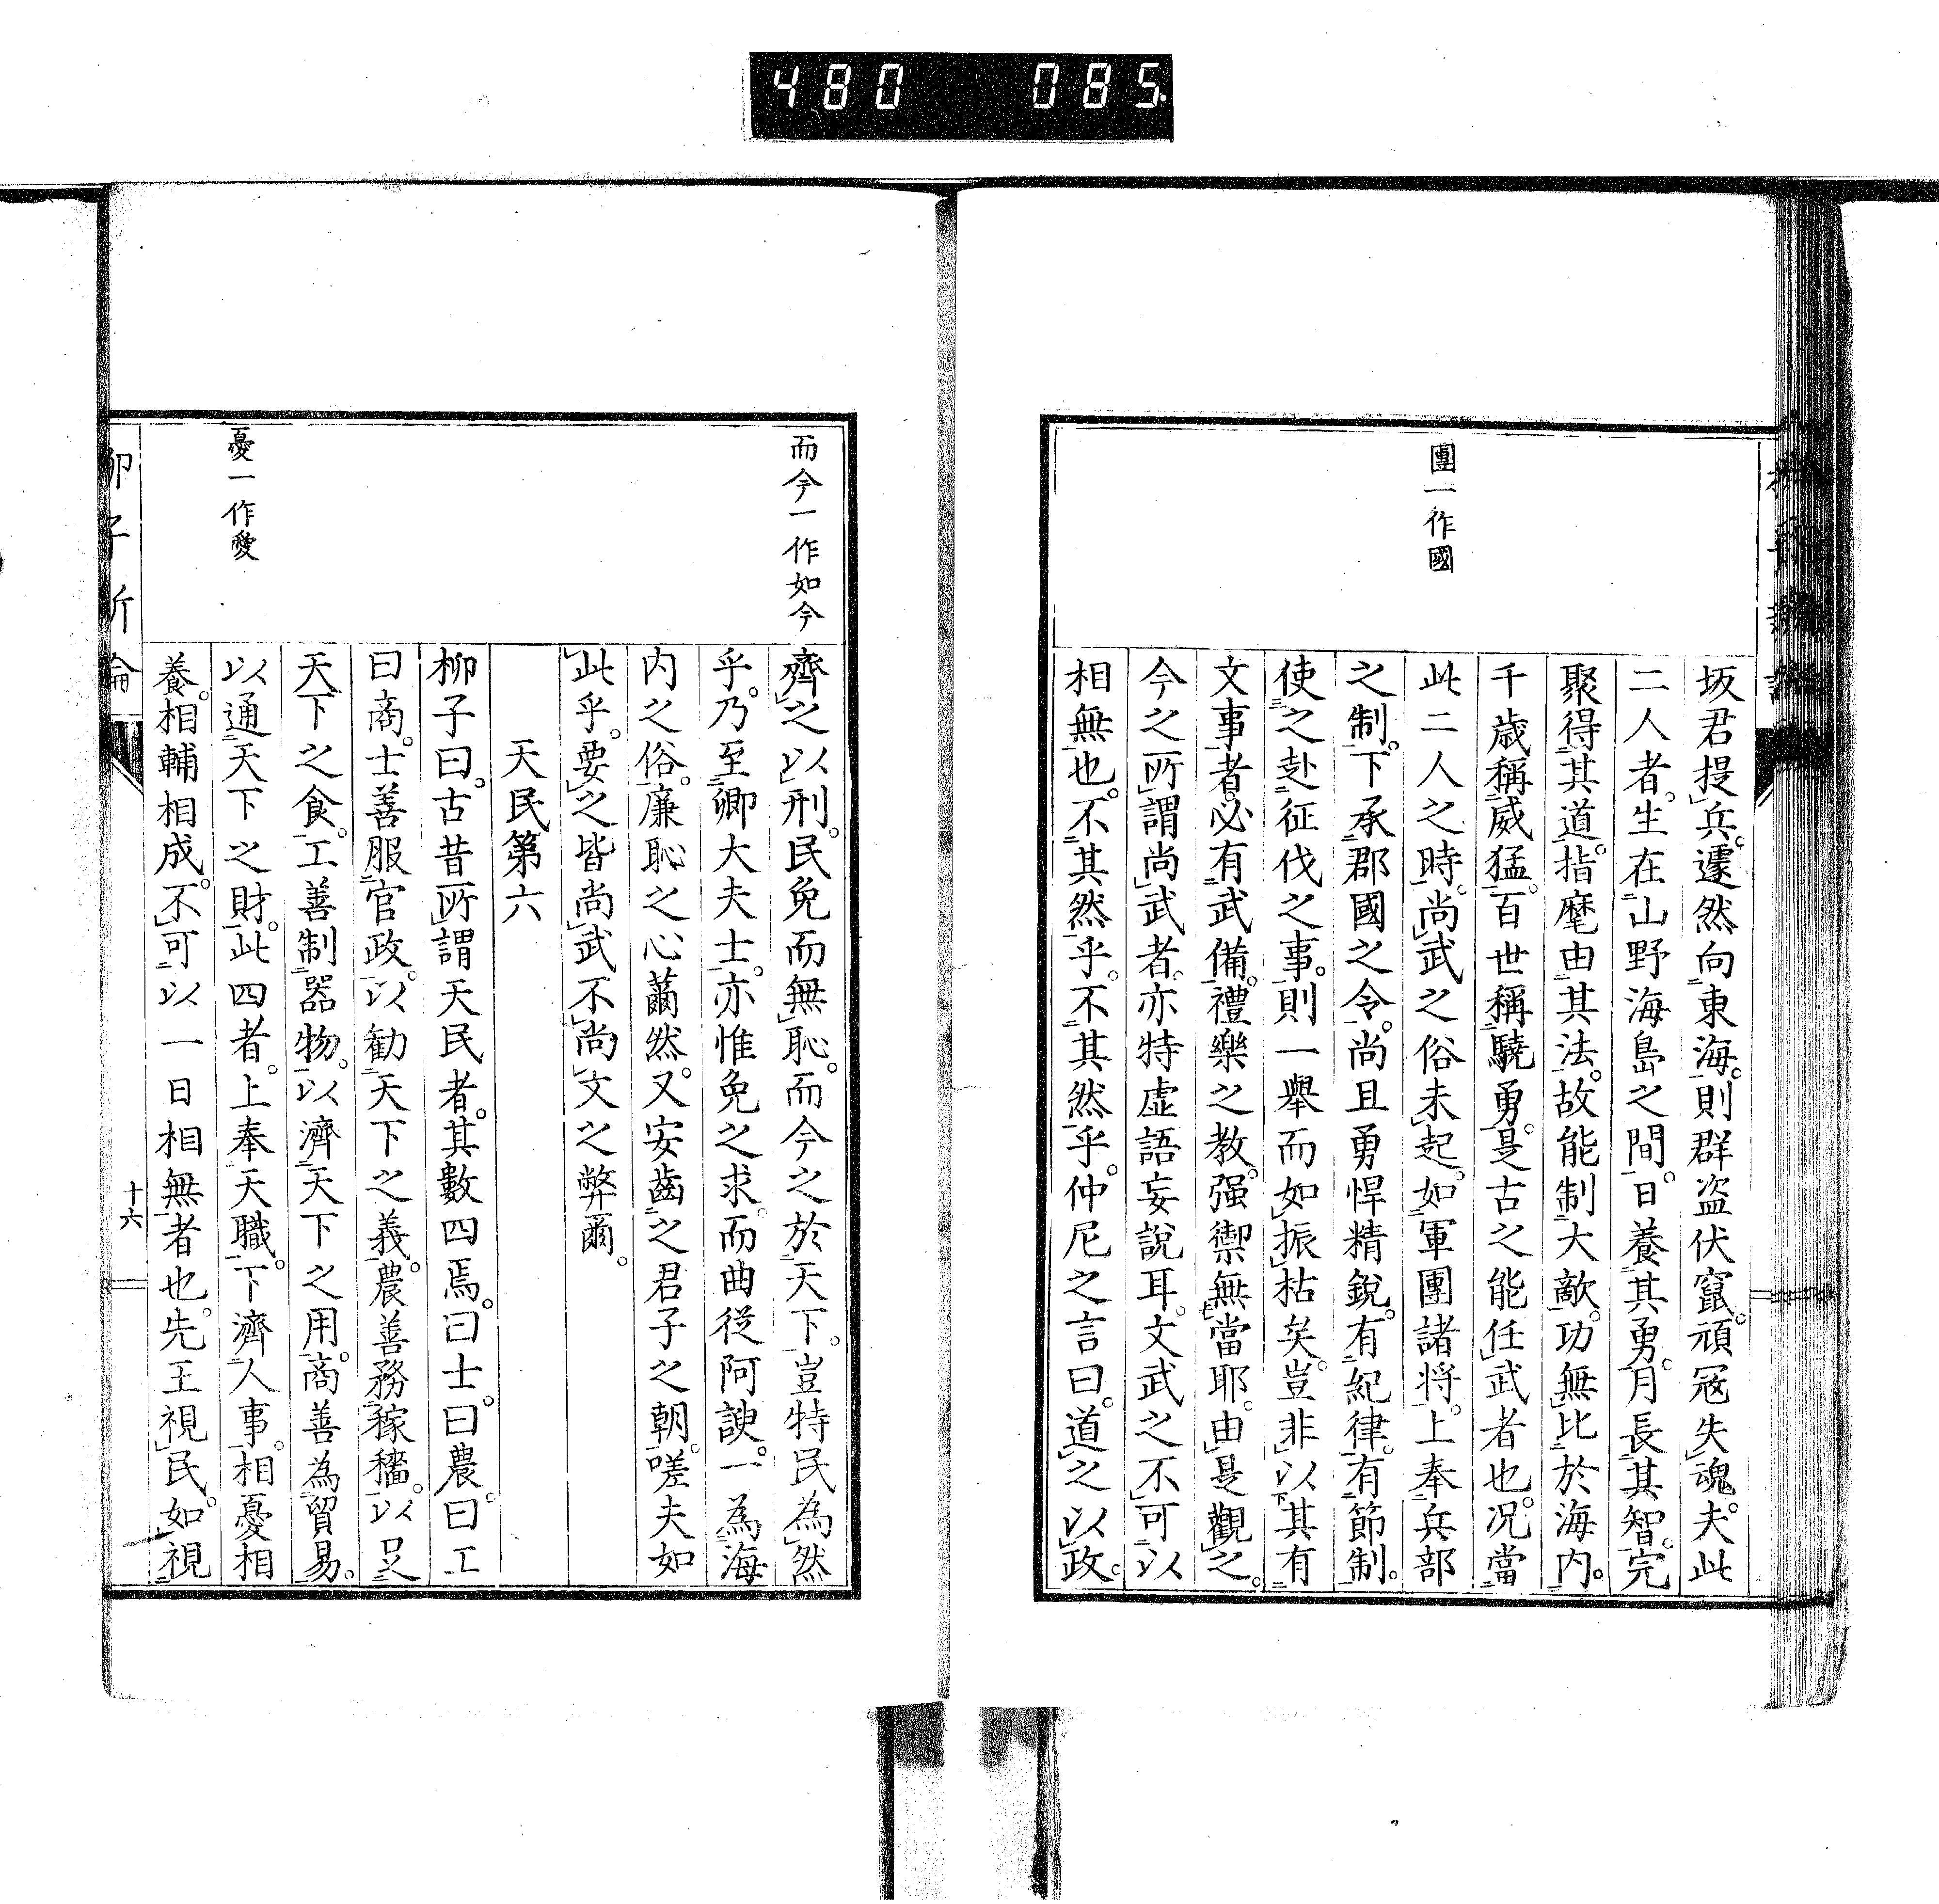 480 085
團一作國
坂君提兵。遽然向東海。則群盜伏竄。頑冦失魂。夫此
二人者。生在山野海島之間。日養其勇。月長其智。完
聚得其道。指麾由其法。故能制大敵。功無比於海内。
千歳稱威猛。百世稱驍勇。是古之能任武者也。况當
此二人之時。尚武之俗未起。如軍團諸将。上奉兵部
之制。下承郡國之令。尚且勇悍精銳。有紀律。有節制。
使之赴征伐之事。則一舉而如振枯矣。豈非以其有
文事者。必有武備。禮樂之教。强禦無當耶。由是觀之。
今之所謂尚武者。亦特虚語妄說耳。文武之不可以
相無也。不其然乎。不其然乎。仲尼之言曰。道之以政。
而今一作如今
齊之以刑。民免而無恥。而今之於天下。豈特民為然
乎。乃至卿大夫士。亦惟免之求。而曲従阿諛。一為海
内之俗。廉恥之心薾然。又安齒之君子之朝。嗟夫如
此乎。要之皆尚武不尚文之弊爾。
天民第六
柳子曰。古昔所謂天民者。其數四焉。曰士。曰農。曰工
曰商。士善服官政。以勧天下之義。農善務稼穡。以足
天下之食。工善制器物。以濟天下之用。商善為貿易。
以通天下之財。此四者。上奉天職。下濟人事。相憂相
養。相輔相成。不可以一日相無者也。先王視民。如視
憂一作愛
柳子新論
十六